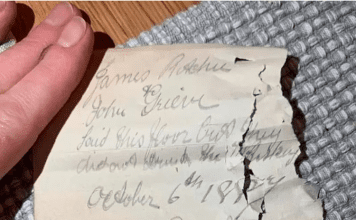 James Ritchie
John Grieve
laid this floor but they
did not drink the whisky
October 6th 1887